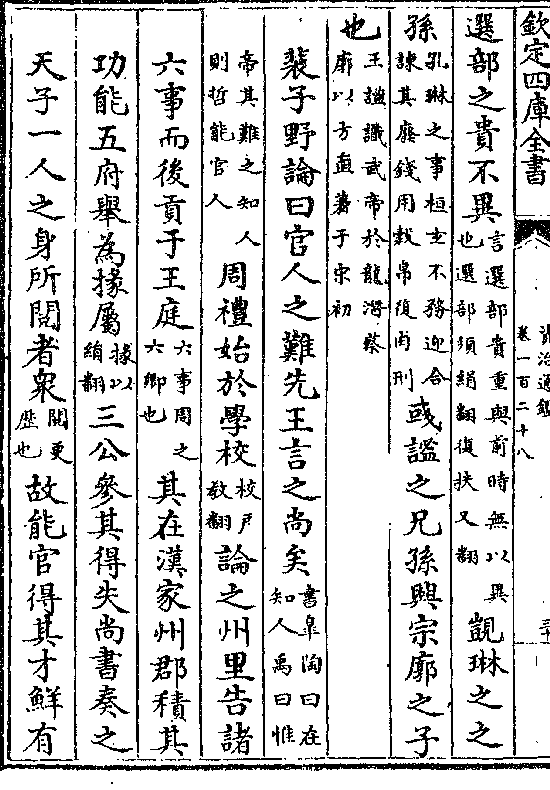 欽定四庫全書
資治通鑑
卷一百二十八
選部之貴不異言選部貴重與前時無以異也選部須絹翻復扶又翻覬琳之之
孫孔琳之事桓玄不務迎合諫其廢錢用穀帛復肉刑彧謐之兄孫興宗廓之子
也王謐識武帝於龍潛蔡廓以方直著于宋初
裴子野論曰官人之難先王言之尚矣書臯陶曰在知人禹曰惟
帝其難之知人則哲能官人周禮始於學校校戶教翻論之州里告諸
六事而後貢于王庭六事周之六卿也其在漢家州郡積其
功能五府舉為掾屬掾以絹翻三公參其得失尚書奏之
天子一人之身所閱者衆閱更歷也故能官得其才鮮有